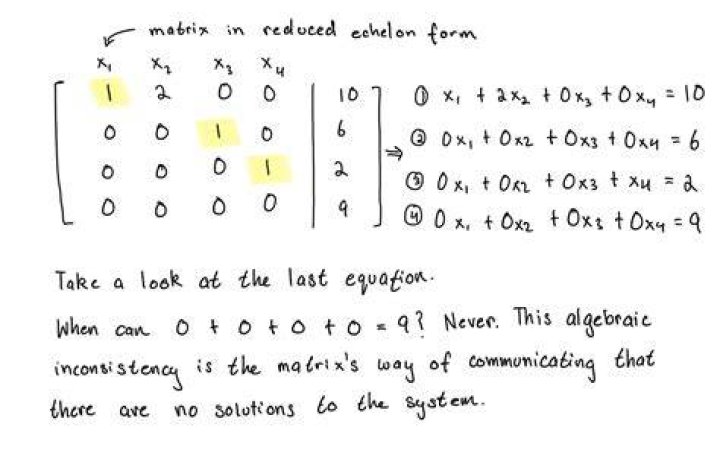 matrix in reduced echelon form
x₁ x₂ x₃ x₄
1 2 0 0 | 10
0 0 1 0 | 6
0 0 0 1 | 2
0 0 0 0 | 9
⇒
① x₁ + 2x₂ + 0x₃ + 0x₄ = 10
② 0x₁ + 0x₂ + 0x₃ + 0x₄ = 6
③ 0x₁ + 0x₂ + 0x₃ + x₄ = 2
④ 0x₁ + 0x₂ + 0x₃ + 0x₄ = 9
Take a look at the last equation.
When can 0 + 0 + 0 + 0 = 9? Never. This algebraic
inconsistency is the matrix's way of communicating that
there are no solutions to the system.